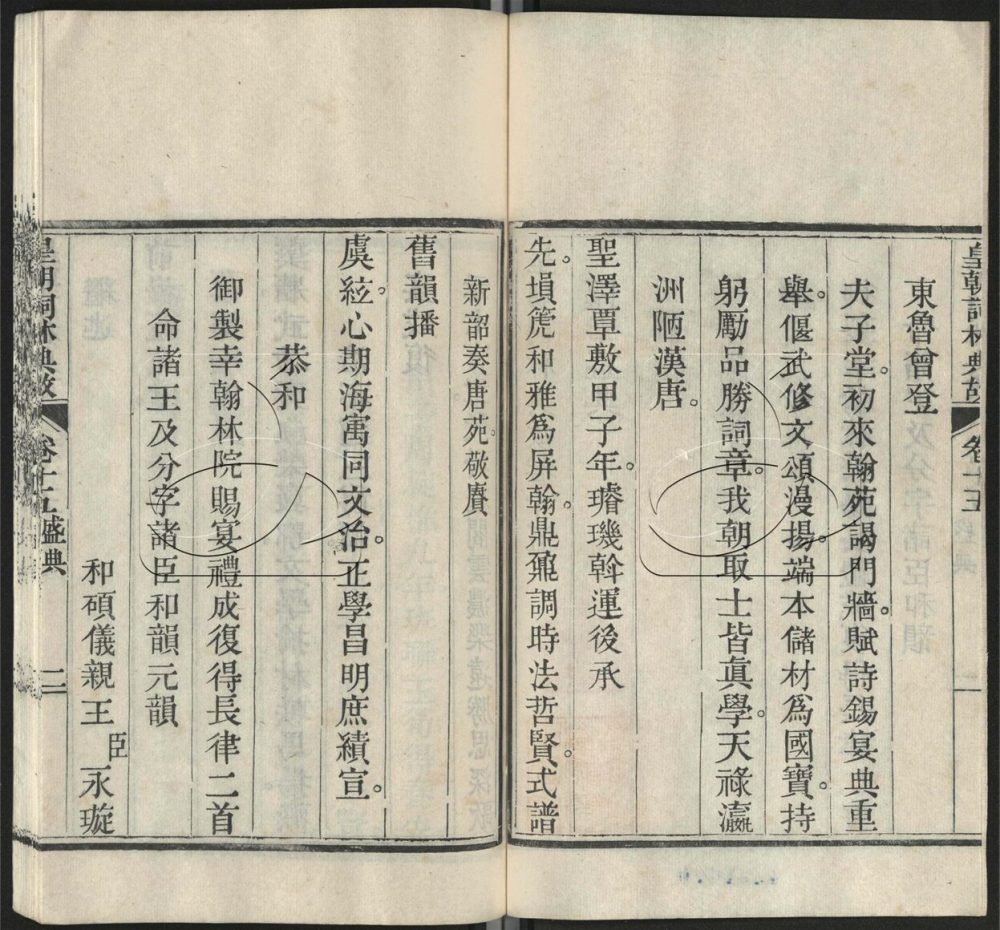 皇朝詞林典故 卷十五 一
東魯曾登
夫子堂。初來翰苑謁門牆。賦詩錫宴典重
舉。偃武修文頌漫揚。端本儲材爲國寶。持
躬勵品勝詞章。我朝取士皆眞學。天祿瀛
洲陋漢唐。
聖澤覃敷甲子年。璿璣斡運後承
先。塤箎和雅爲屏翰。鼎鼐調時法哲賢。式譜
新韶奏唐苑。敬賡
舊韻播
虞絃。心期海寓同文治。正學昌明庶績宣。
恭和
御製幸翰林院賜宴禮成復得長律二首
命諸王及分字諸臣和韻元韻
和碩儀親王臣永璇
皇朝詞林典故 卷十五 盛典 二